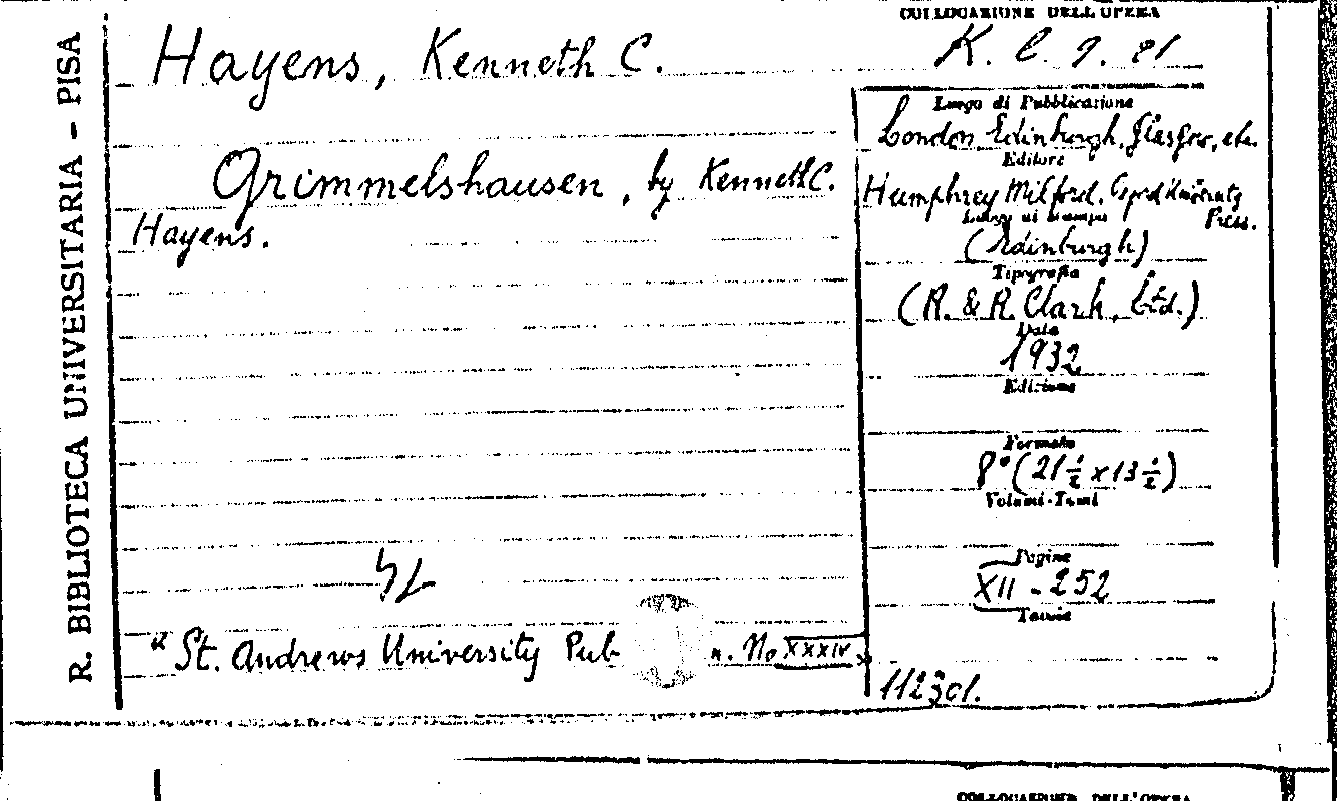 R. BIBLIOTECA UNIVERSITARIA - PISA
Hayens, Kenneth C.
Grimmelshausen, by Kenneth C.
Hayens.
"St. Andrews University Pub n. No XXXIV"
COLLOCAZIONE DELL'OPERA
K. C. 9. 21
Luogo di Pubblicazione
London Edinburgh, Glasgow, etc.
Editore
Humphrey Milford.
Press.
Luogo di stampa
(Edinburgh)
Tipografia
(R. & R. Clark, Ltd.)
Data
1932
Edizione
Formato
8° (21 1/2 x 13 1/2)
Volumi-Tomi
Pagine
XII - 252
Tavole
112301.
COLLOCAZIONE DELL'OPERA